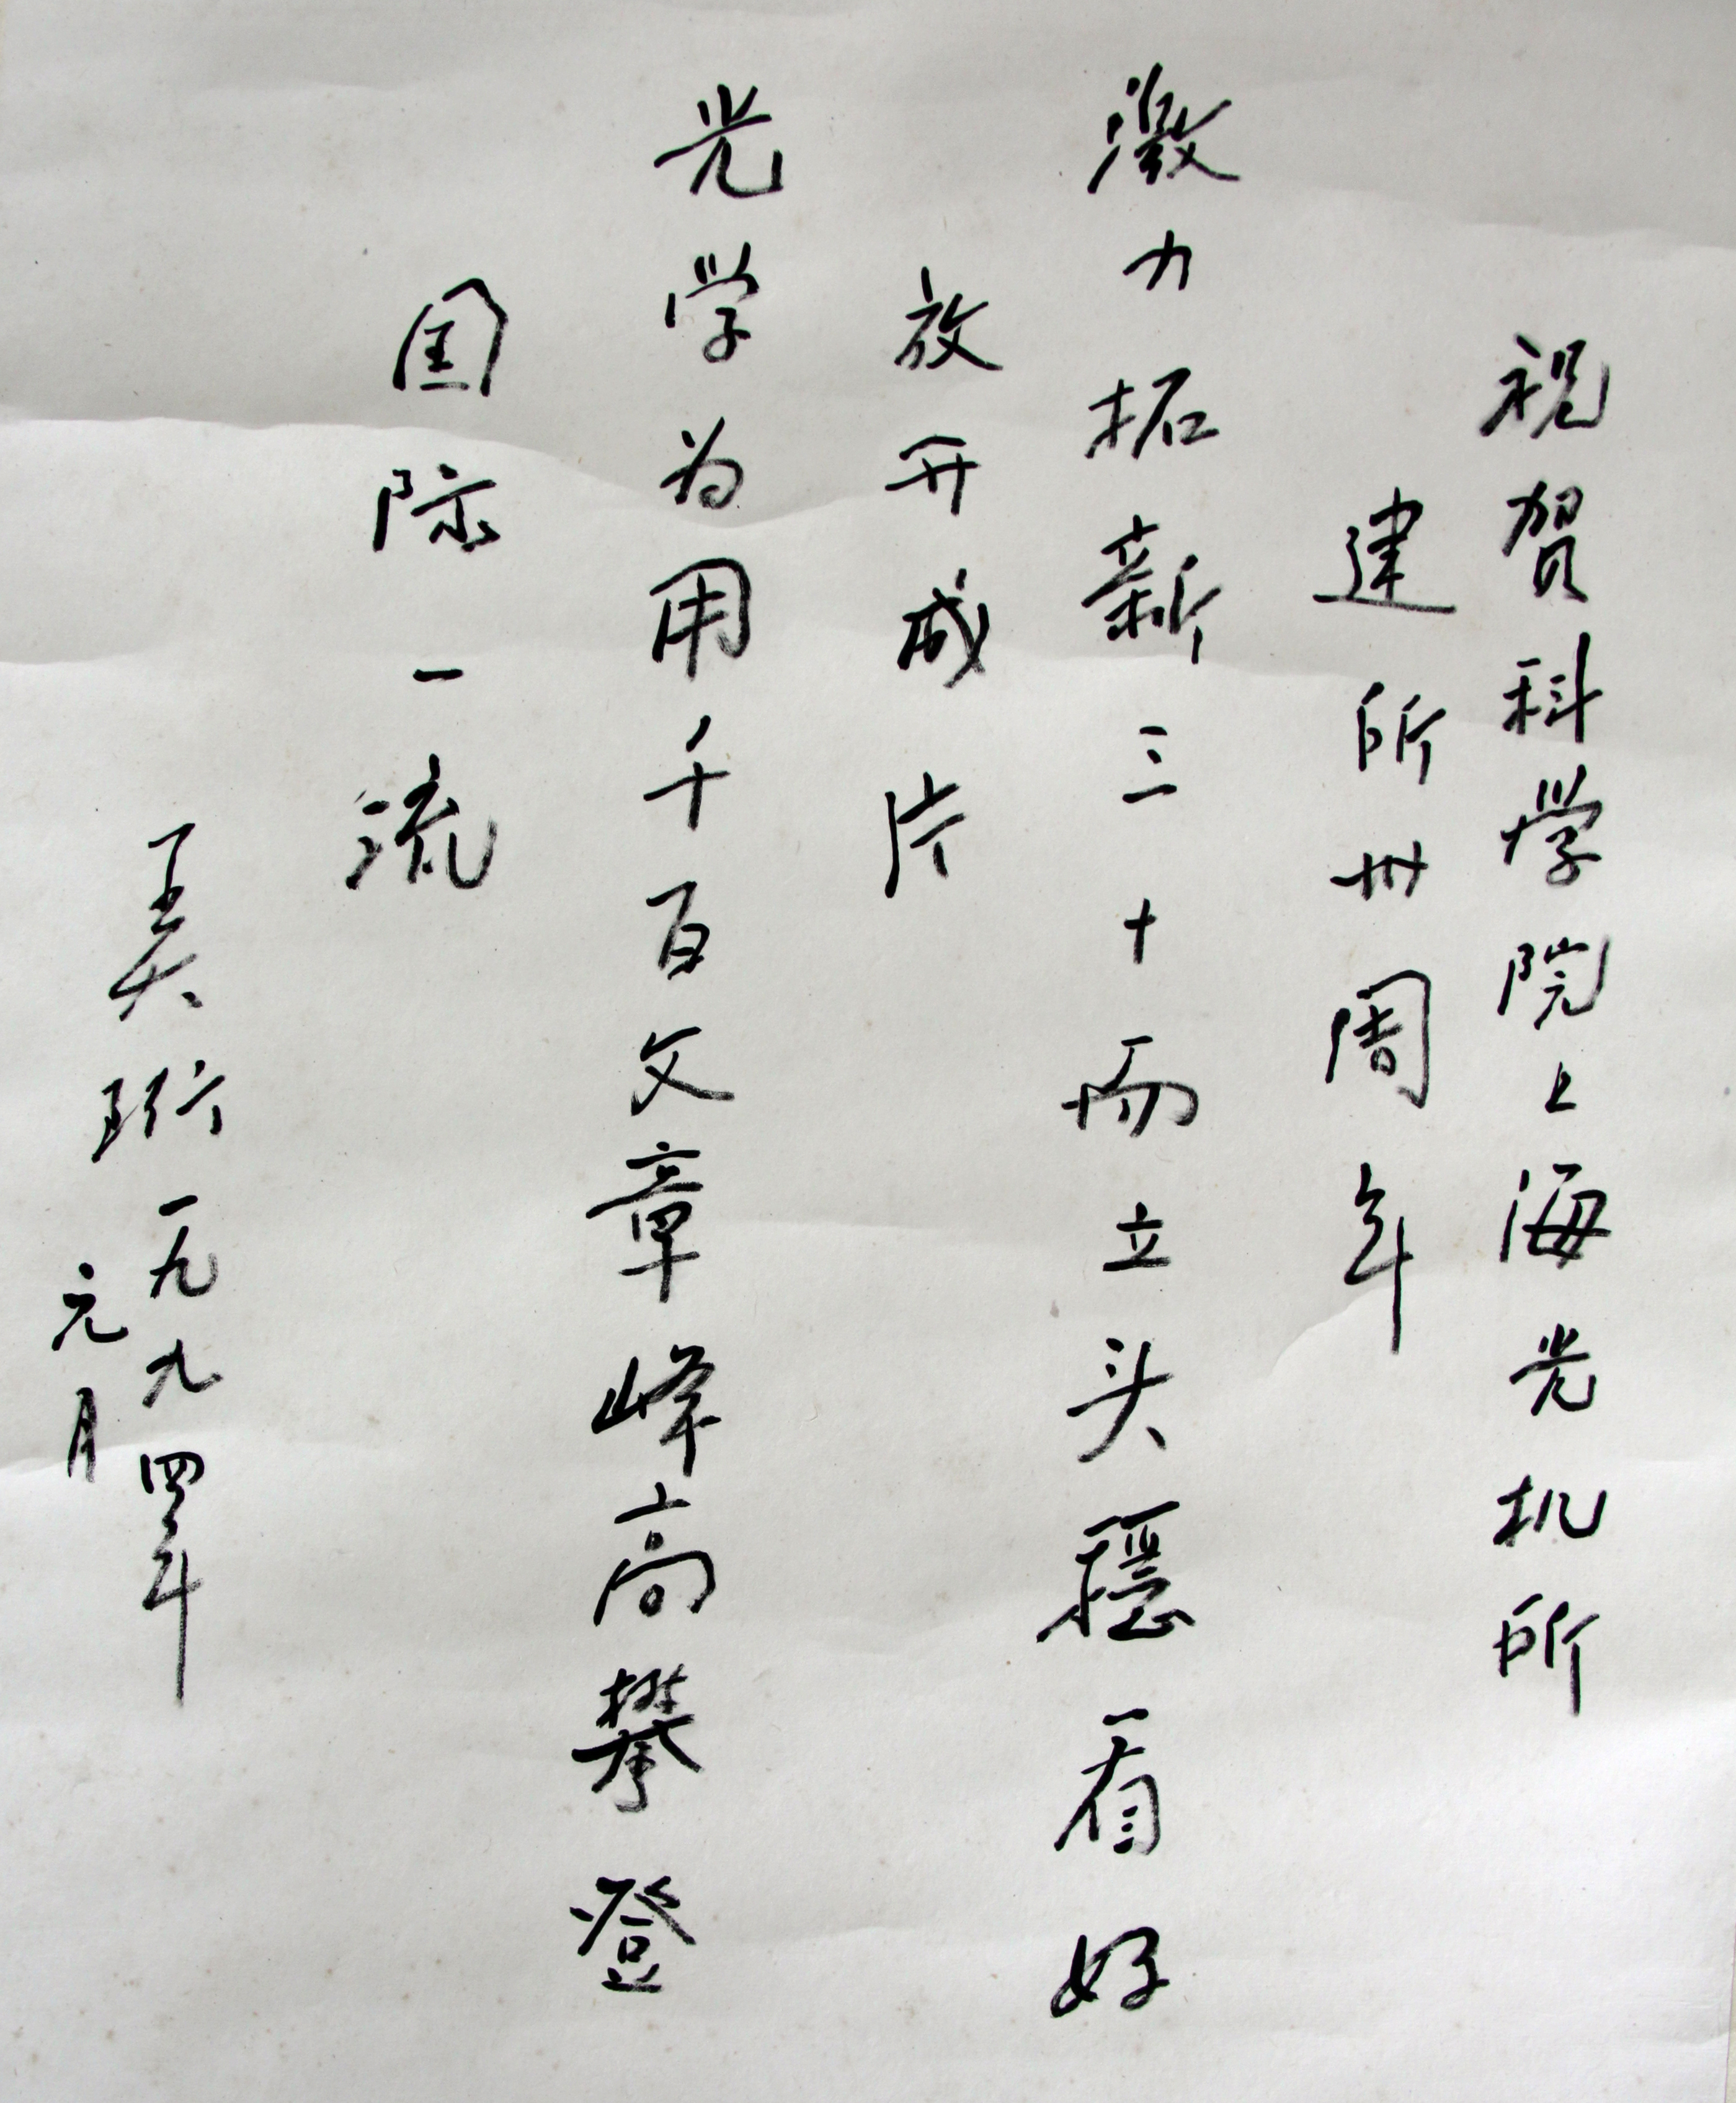 祝贺科学院上海光机所
建所卅周年
激力拓新三十而立头穩看好
放开成片
光学为用千百文章峰高攀登
国际一流
王大珩一九九四年
元月